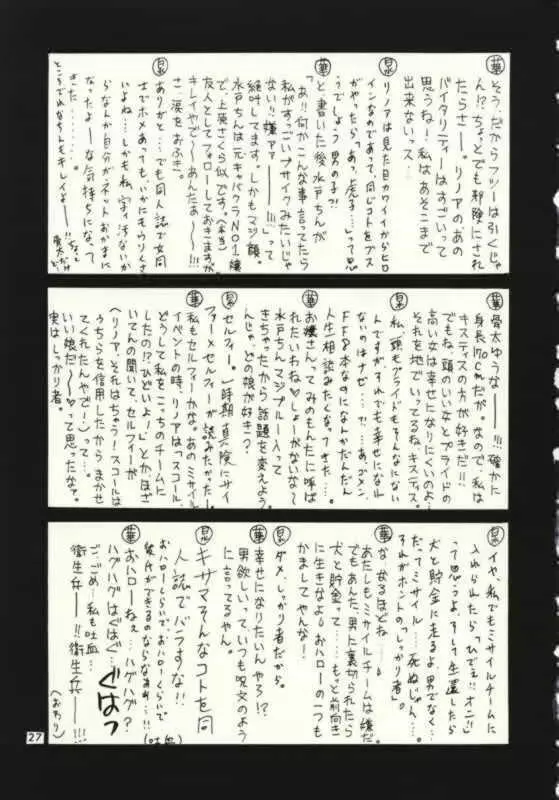 華 そう、だからフツーは引くじゃ
ん!?ちょっとでも邪険にされ
たらさー。リノアのあの
バイタリティーはすごいって
思うね!私はあそこまで
出来ないっス…
晃 リノアは見た目カワイイからヒロ
インなのであって、同じコトをブス
がやったら「あっ虎子…」って思
うでしょう男の子?!
華 と書いた後水戸ちんが
「あ!!何かこんな事言ってたら
私がすっごいブサイクみたいじゃ
ない!!嫌アァーー!!!」って
絶叫してます。しかもマジ顔。
水戸ちんは元キャバクラNO1嬢
で、上原さくら似です。(本当)
友人としてフォローしておきますが
キレイやで〜あんたぁ〜!!!
さ、涙をおふき。
晃 ありがと…でも同人誌で女同
士でホメあっても、いかにもうりくさ
いよね…しかも私字汚ないか
らなんか自分がネットおかまに
なったよーな気持ちになって
きた…
ところでれなちんもキレイよーー!!
華 骨太ゆうなーー!!!確かに
身長170cmだが。なので、私は
キスティスの方が好きだ!!
でもね、頭のいい女とプライドの
高い女は幸せになりにくいのよ…
それを地でいってるね、キスティス。
晃 私、頭もプライドもそんなにない
んですがそれでも幸せになれ
ないのはナゼ…?…あゴメン
FF8本なのになんかだんだん
人生相談みたくなってきた…。
お嬢さんってみのもんたに呼ば
れたいわね♡しょーがないな〜
華 水戸ちんマジブルー入って
きちゃったから話題を変えよう。
んじゃ、どの娘が好き?
晃 セルフィー。一時期真険にサイ
ファー×セルフィーが読みたかった…
華 私もセルフィーかな。あのミサイル
イベントの時、リノアは「スコール、
どうして私をこっちのチームに
したの!?ひどいよ!」とかほざ
いてんの聞いて、セルフィーが
「リノア、それはちゃう!スコールは
うちらを信用したからまかせ
てくれたんやで!」って…。
いい娘だ〜♡って思ったなァ。
実はしっかり者。
晃 イヤ、私でもミサイルチームに
入れられたら「ひでぇ!!オニ!!」
って思うよ。そして生還したら
犬と貯金に走るよ、男でなく…
だってミサイル…死ぬじゃん…。
それがホントの「しっかり者」。
華 な、なるほどね…
あたしもミサイルチームは嫌だ。
でもあんた、男に裏切られたら
犬と貯金って……もっと前向き
に生きなよ!おハローの一つも
かましてやんな!
晃 ダメ。しっかり者だから。
華 幸せになりたいんやろ!?
男欲しいって、いつも呪文のよう
に言ってるやん。
晃 キサマそんなコトを同
人誌でバラすな!!
おハローしらいでおハローくらいで
彼氏ができるのならなぁぁ…!!
(吐血)
華 おハローねぇ…ハグハグ?
ハグハグはぐはぐ…ぐはっ
ごっごめ…私も吐血…
衛生兵ーー!!衛生兵ーー!!!
(おわり)
27